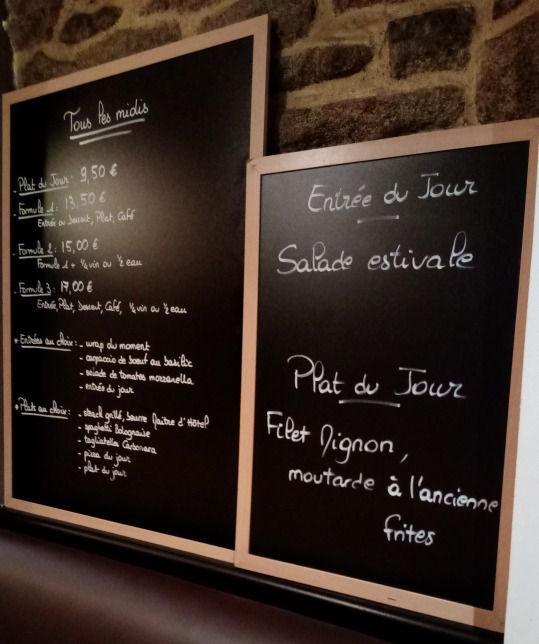 Tous les midis
- Plat du Jour : 9,50 €
- Formule 1 : 13,50 €
Entrée ou Dessert, Plat, Café
- Formule 2 : 15,00 €
Formule 1 + ¼ vin ou ½ eau
- Formule 3 : 17,00 €
Entrée, Plat, Dessert, Café, ¼ vin ou ½ eau
* Entrées au choix : - wrap du moment
- carpaccio de boeuf au basilic
- salade de tomates mozzarella
- entrée du jour
* Plats au choix : - steack grillé, beurre Maître d'Hôtel
- spaghetti Bolognaise
- tagliatelles Carbonara
- pizza du jour
- plat du jour
Entrée du Jour
Salade estivale
Plat du Jour
Filet Mignon,
moutarde à l'ancienne
frites